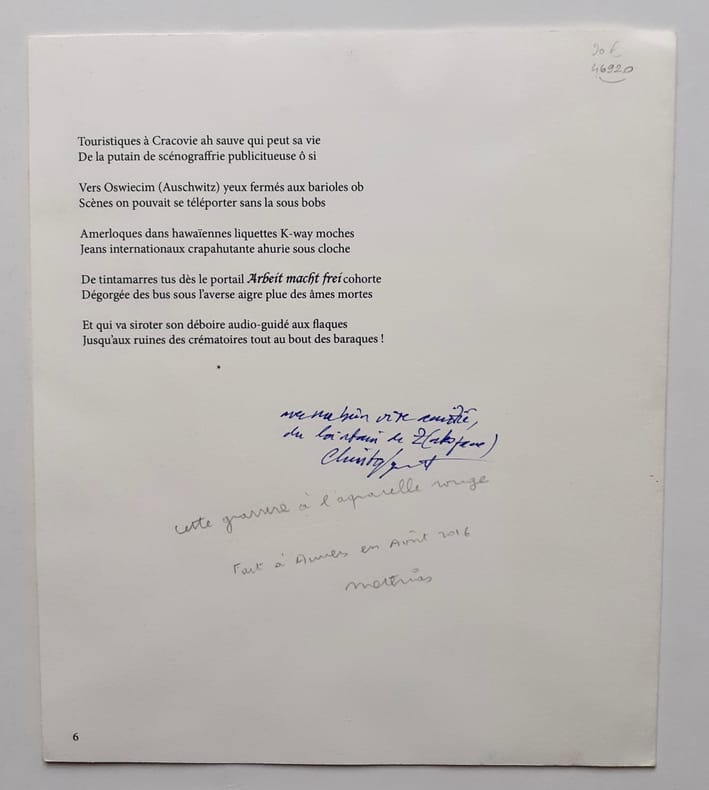 46920
Touristiques à Cracovie ah sauve qui peut sa vie
De la putain de scénograffrie publicitueuse ô si
Vers Oswiecim (Auschwitz) yeux fermés aux barioles ob
Scènes on pouvait se téléporter sans la sous bobs
Amerloques dans hawaïennes liquettes K-way moches
Jeans internationaux crapahutante ahurie sous cloche
De tintamarres tus dès le portail Arbeit macht frei cohorte
Dégorgée des bus sous l'averse aigre plue des âmes mortes
Et qui va siroter son déboire audio-guidé aux flaques
Jusqu'aux ruines des crématoires tout au bout des baraques !
vive amitié,
du lointain de
cette gravure à l'aquarelle rouge
Fait à en Avril 2016
Mathias
6